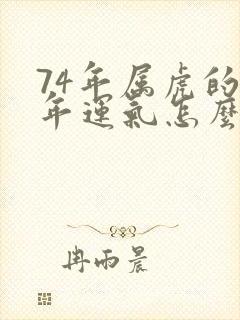 74年属虎的
年運氣怎麼
冉雨晨